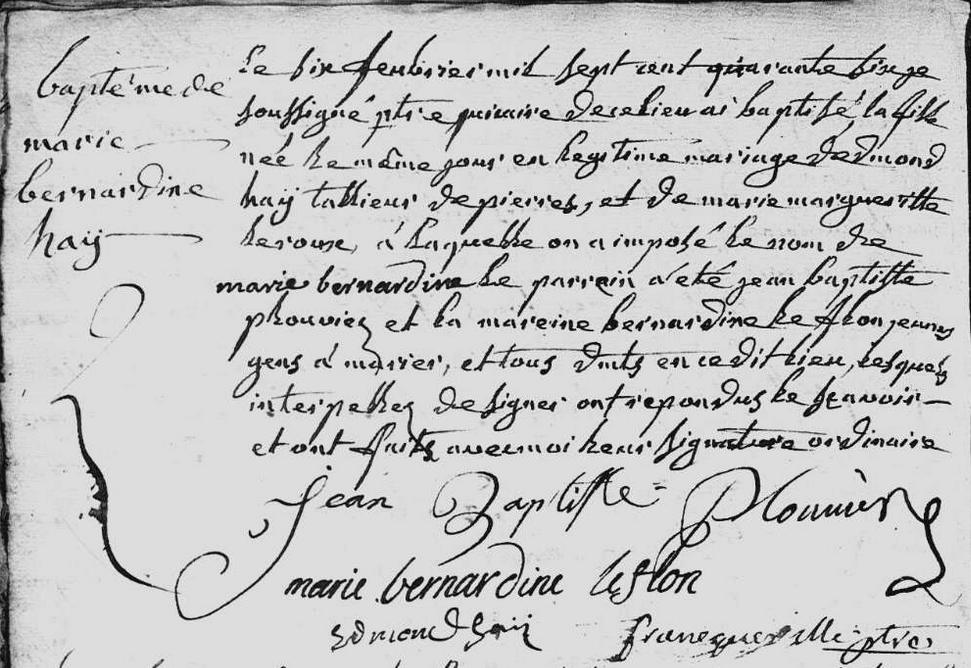 baptême de
marie
bernardine
haÿ
Le six feubvrier mil sept cent quarante six je
soussigné ptre viccaire de ce lieu ai baptisé la fille
née le même jour en legitime mariage d'edmond
haÿ tallieur de pierres, et de marie margueritte
leroux, à laquelle on a imposé le nom de
marie bernardine le parrein a été jean baptiste
plouviez et la mareine bernardine le flon jeunes
gens à marier, et tous deux en cedit lieu, lesquels
interpellez de signer ont repondus le sçavoir
et ont faits avec moi leur signature ordinaire
Jean Baptiste Plouvier
marie bernardine leflon
Edmond haÿ francqueville ptre